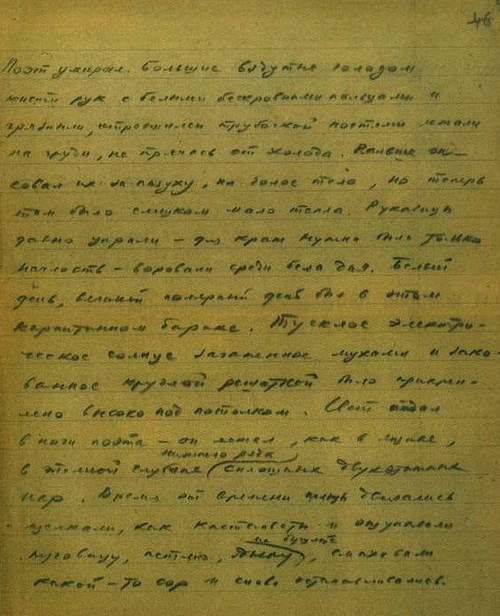 46
Поэт умирал. Большие вздутые голодом
кисти рук с белыми бескровными пальцами и
грязными, отросшими трубочкой ногтями лежали
на груди, не прячась от холода. Раньше он
совал их за пазуху, на голое тело, но теперь
там было слишком мало тепла. Рукавицы
давно украли – для краж нужна была только
наглость – воровали среди бела дня. Белый
день, великий полярный день был в этом
карантинном бараке. Тусклое электри-
ческое солнце загаженное мухами и зако-
ванное круглой решеткой было прикреп-
лено высоко под потолком. Свет падал
в ноги поэта – он лежал, как в ящике,
нижнего ряда
в темной глубине сплошных двухэтажных
нар. Время от времени пальцы двигались
щелкали, как кастаньеты и ощупывали
на бушлате
пуговицу, петлю, дыру, смахивали
какой-то сор и снова останавливались.